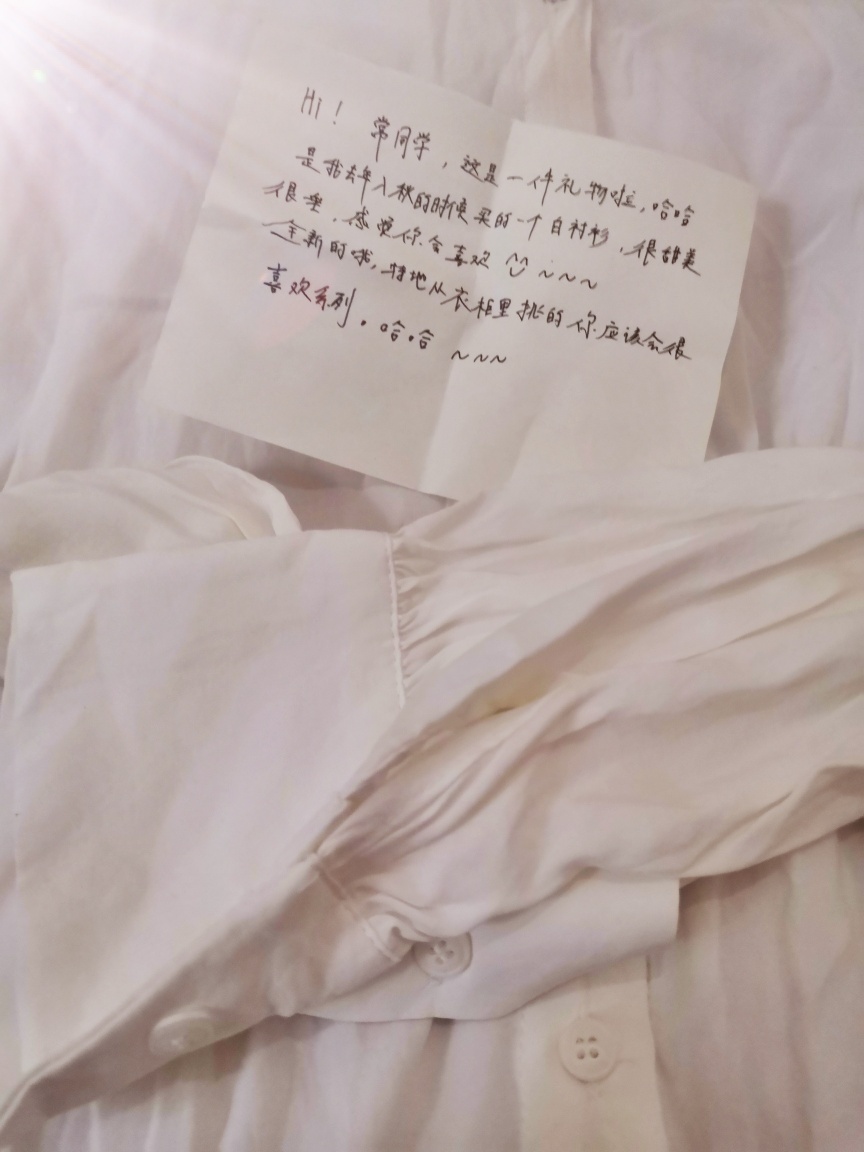 Hi！ 常同学，这是一件礼物啦，哈哈
是我去年入秋的时候买的一个白衬衫，很甜美
很垂，感觉你会喜欢 ~~~
全新的哦，特地从衣柜里挑的你应该会很
喜欢系列。哈哈 ~~~